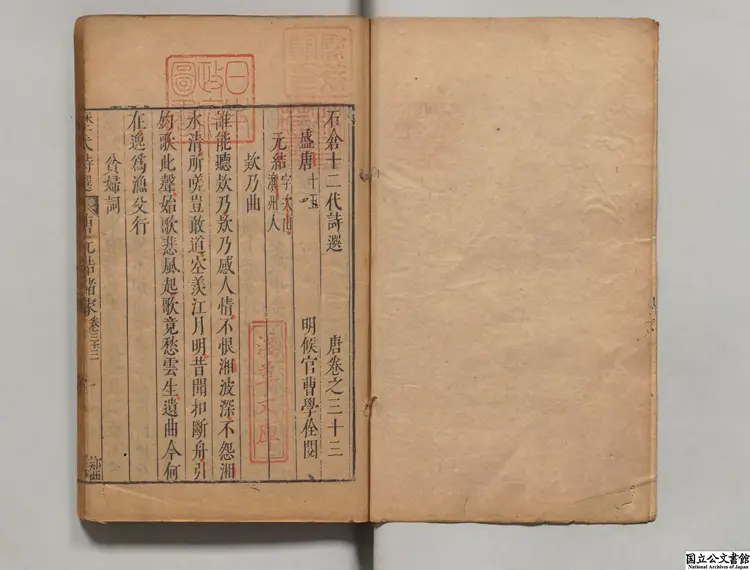 石倉十二代詩選 唐卷之三十三
盛唐 十 明候官曹學佺閱
元結 字次山 瀼州人
欸乃曲
誰能聽欸乃欸乃感人情不恨湘波深不怨湘
水清所嗟豈敢道空羨江月明昔聞扣斷舟引
釣歌此聲始歌悲風起歌竟愁雲生遺曲今何
在逸爲漁父行
貧婦詞
詩選 唐元結諸家 卷三十三 一
日本政府圖書
淺草文庫
国立公文書館
National Archives of Japan